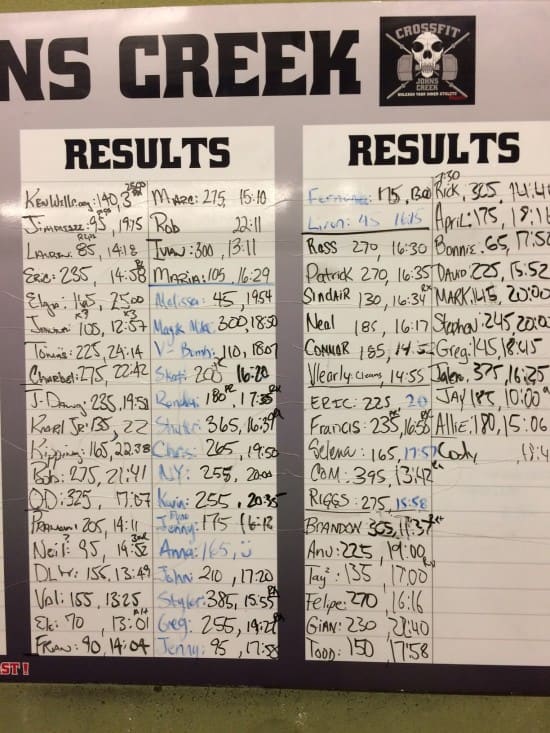 NS CREEK
CROSSFIT
JOHNS
CREEK
UNLEASH YOUR INNER ATHLETE
RESULTS
Jimmyjzzz: 95, 1975
Lauren: 85, 14:18
Eric: 235, 14:58
165, 25:00
105, 12:57
Tomas: 225, 24:14
Charbel: 275, 22:42
J. Dawg: 235, 19:51
Karl Jr: 135, 22
Kipping: 165, 22:38
Bob: 275, 21:41
OD: 325, 17:07
205, 14:11
Neil: 95, 14:52
DLW: 155, 13:49
Val: 155, 13:25
Ek: 70, 13:01
Fran: 90, 14:04
Marc: 275, 15:10
Rob 22:11
Ivan: 300, 13:11
Maria: 105, 16:29
Melissa: 45, 1954
Magic Mike: 300, 18:50
V-Bomb: 110, 18:07
200 16:20
Randy: 180, 17:35
365, 16:39
Chris: 265, 19:50
NY: 255, 20:00
Kevin: 255, 20:35
Jenny: 175, 16:12
Anna: 165, ü
John: 210, 17:20
Styler: 385, 15:55
Greg: 255, 19:22
Jenny: 95, 17:58
RESULTS
175, 1300
Liron: 45 16:15
Ross 270, 16:30
Patrick 270, 16:35
Sinclair 130, 16:34 RX
Neal 185, 16:17
Connor 185, 14:52
Vlearly: Cleans, 14:55
ERIC: 225 20
Francis: 235, 16:50
Selena: 165, 17:57
COM: 395, 13:42
RIGGS: 275, 15:58
BRANDON 365, 11:37
Anu: 225, 19:00
Tay²: 135 17:00
Felipe: 270, 16:16
GIAN: 230, 21:40
TODD: 150, 17:58
7:30
Rick, 365, 14:41
April: 175, 18:11
Bonnie: 65, 17:50
DAVID 225, 15:52
MARK, 145, 20:00
Stephan: 245, 20:02
Greg: 145, 18:45
Jalen: 375, 16:25
JAY 185, 10:00
Allie: 180, 15:06
Cody
ST!